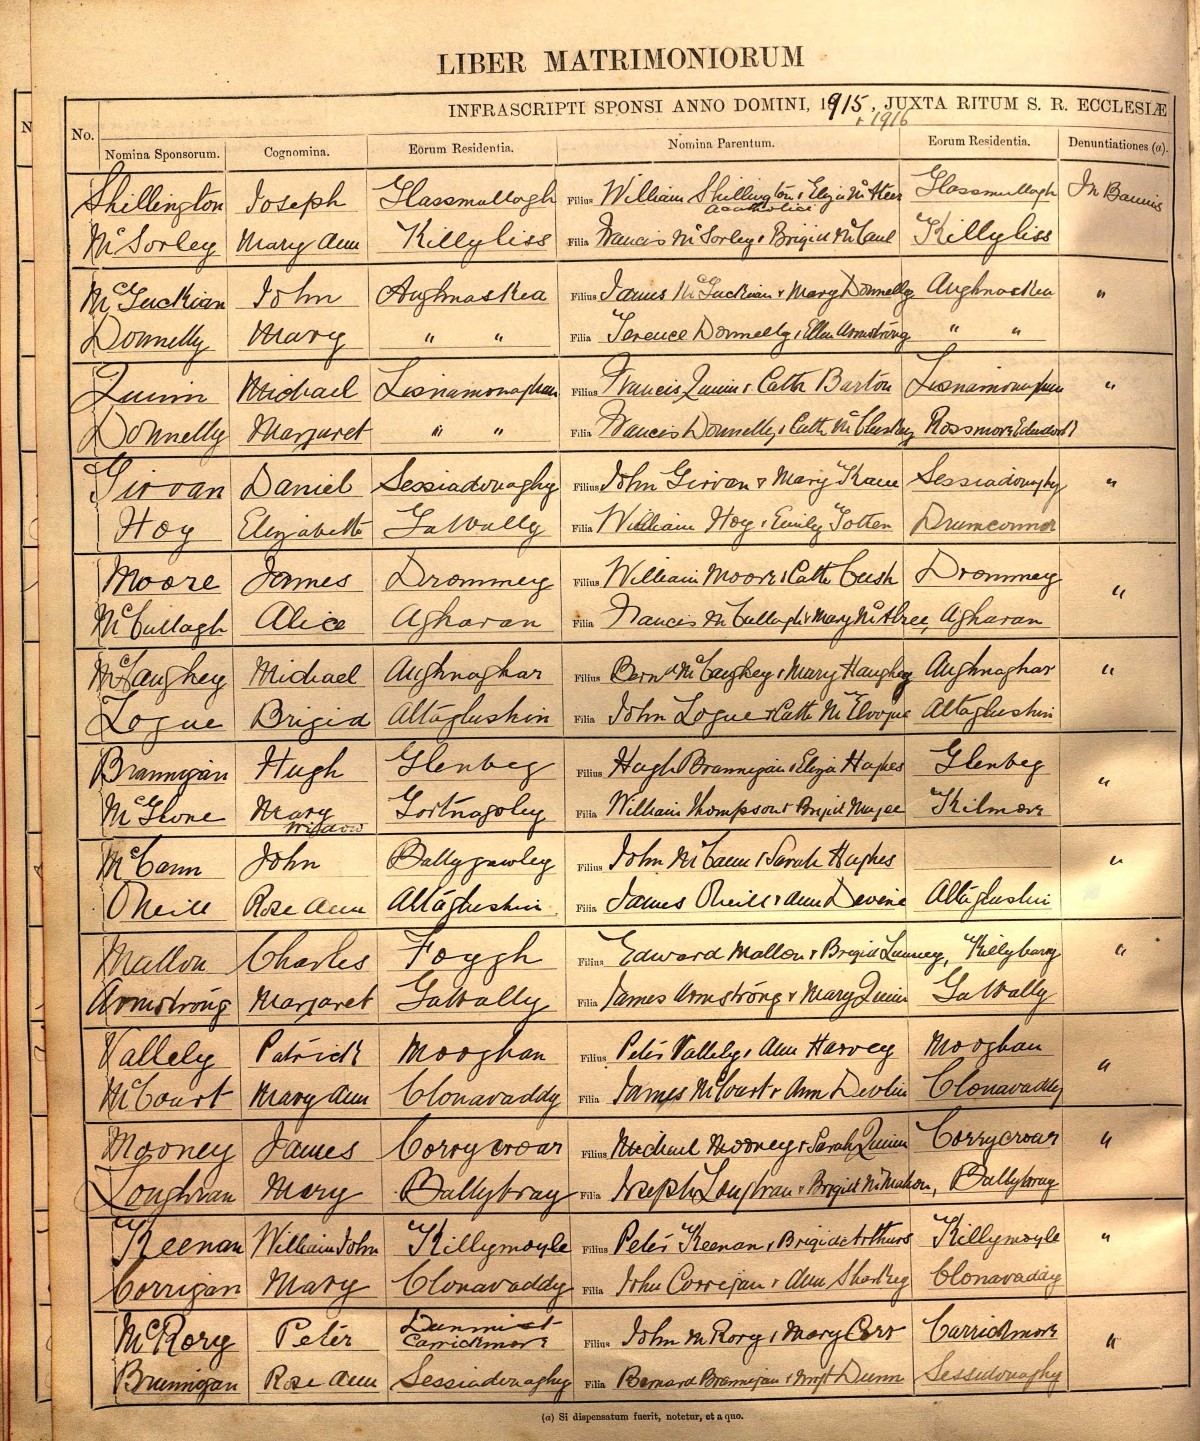 LIBER MATRIMONIORUM
INFRASCRIPTI SPONSI ANNO DOMINI, 1915, JUXTA RITUM S. R. ECCLESIÆ
+ 1916
No. Nomina Sponsorum. Cognomina. Eorum Residentia. Nomina Parentum. Eorum Residentia. Denuntiationes (a).
Shillington Joseph Glassmullagh Filius William Shillington & Eliza McAteer Glassmullagh In Bannis
acatholici
McSorley Mary Ann Killyliss Filia Francis McSorley & Brigid McCaul Killyliss
McGuckian John Aughnaskea Filius James McGuckian & Mary Donnelly Aughnaskea "
Donnelly Mary " " Filia Terence Donnelly & Ellen Armstrong " "
Quinn Michael Lisnamonaghan Filius Francis Quinn & Cath Barton Lisnamonaghan "
Donnelly Margaret " " Filia Francis Donnelly & Cath McCluskey Rossmore
Girvan Daniel Sessiadonaghy Filius John Girvan & Mary Kane Sessiadonaghy "
Hoy Elizabeth Galbally Filia William Hoy & Emily Totten Drumconnor
Moore James Drommey Filius William Moore & Cath Cush Drommey "
McCullagh Alice Agharan Filia Francis McCullagh & Mary McAtree, Agharan
McCaughey Michael Aughnaghar Filius Bernd McCaughey & Mary Haughey Aughnaghar "
Logue Brigid Altaglushin Filia John Logue & Cath McElvogue Altaglushin
Brannigan Hugh Glenbeg Filius Hugh Brannigan & Eliza Hughes Glenbeg "
McGlone Mary Gortnagoley Filia William Thompson & Brigid Magee Kilmore
Widow
McCann John Ballygawley Filius John McCann & Sarah Hughes "
O'Neill Rose Ann Altaglushin Filia James O'Neill & Ann Devine Altaglushin
Mallon Charles Foygh Filius Edward Mallon & Brigid Lunney, Killybarry "
Armstrong Margaret Galbally Filia James Armstrong & Mary Quinn Galbally
Vallely Patrick Mooghan Filius Peter Vallely & Ann Harvey Mooghan "
McCourt Mary Ann Clonavaddy Filia James McCourt & Ann Devlin Clonavaddy
Mooney James Corrycroar Filius Michael Mooney & Sarah Quinn Corrycroar "
Loughran Mary Ballybray Filia Joseph Loughran & Brigid McMahon, Ballybray
Keenan William John Killymoyle Filius Peter Keenan & Brigid McArthurs Killymoyle "
Corrigan Mary Clonavaddy Filia John Corrigan & Ann Sharkey Clonavaddy
McRory Peter Dunmist
Carrickmore Filius John McRory & Mary Corr Carrickmore "
Brannigan Rose Ann Sessiadonaghy Filia Bernard Brannigan & Mgt Dunn Sessidonaghy
(a) Si dispensatum fuerit, notetur, et a quo.